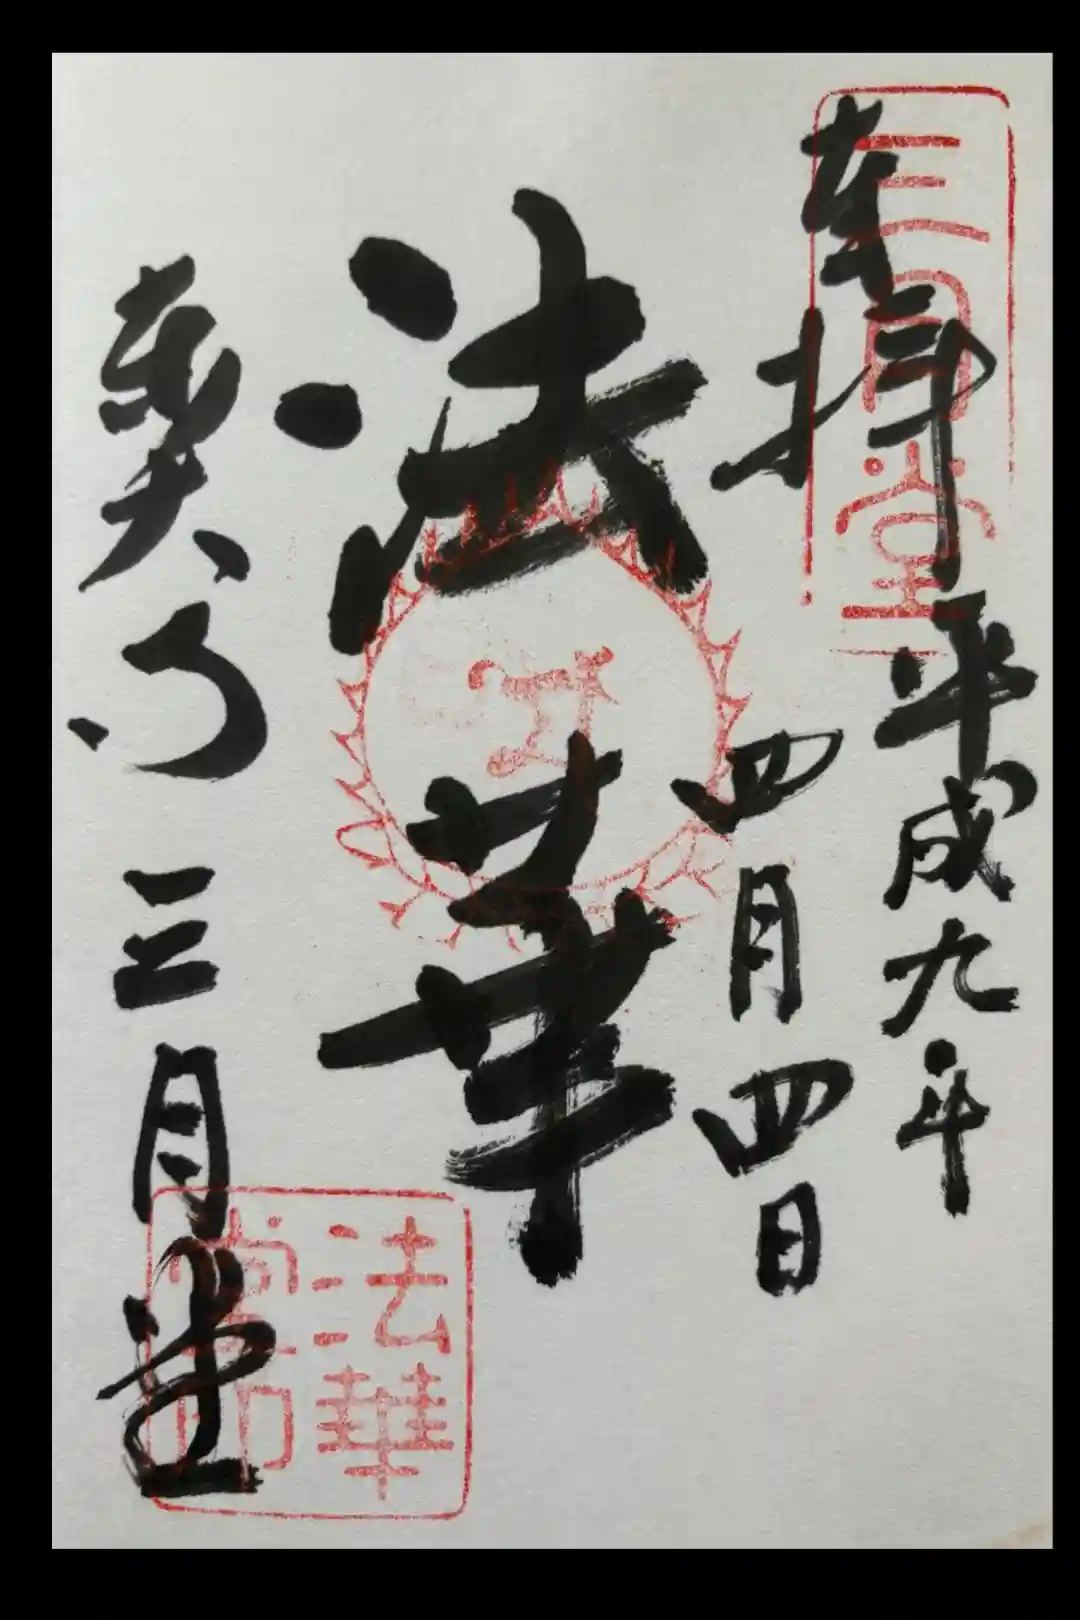 奉拝
平成九年
四月四日
法華
東大寺
三月堂
三月堂
法華
堂印